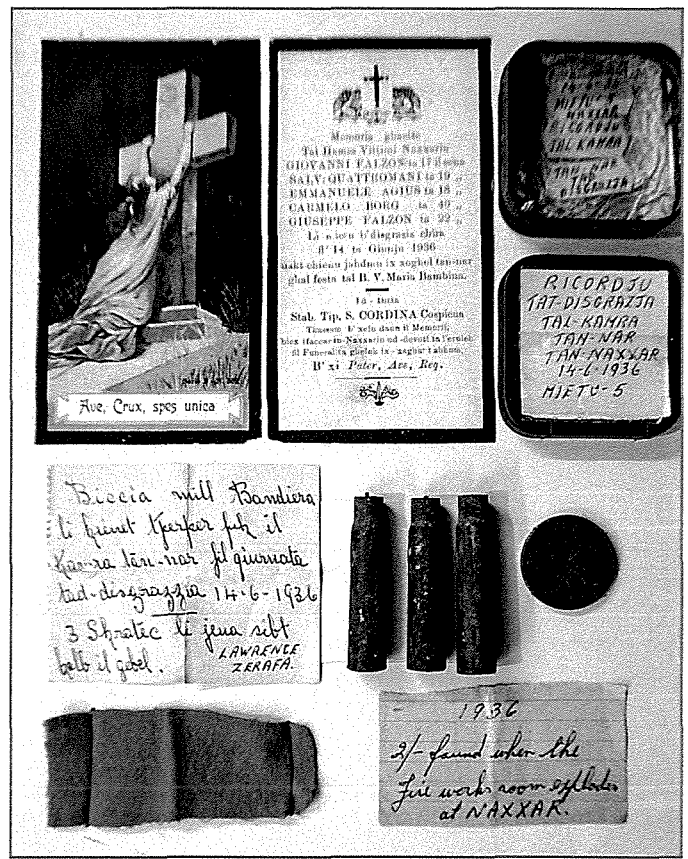 Ave, Crux, spes unica
Memoria ghaxxe
Tal Hames Vittmi Naxxarin
GIOVANNI FALZON ta 17 il sena
SALV. QUATTROMANI ta 19 „
EMMANUELE AGIUS ta 18 „
CARMELO BORG ta 40 „
GIUSEPPE FALZON ta 22 „
Li mietu b'disgrazia chira
fl'14 ta Giunju 1936
uakt chienu jahdmu ix xoghol tan-nar
ghal festa tal B. V. Maria Bambina.
Stab. Tip. S. CORDINA Cospicua
B' xi Pater, Ave, Req.
MIETU
NAXXAR
RICORDJU
TAL KAMRA
TAN-NAR
DISGRAZJA
RICORDJU
TAT-DISGRAZJA
TAL-KAMRA
TAN-NAR
TAN-NAXXAR
14-6-1936
MIETU-5
Biccia mill Bandiera
li kienet tperper fuk il
Kam-ra tan-nar fil giurnata
tad-disgrazzia 14-6-1936
3 Skratec li jena sibt
golb il gebel.
LAWRENCE
ZERAFA.
- 1936
2/- found when the
Fire works room explodes
at NAXXAR.